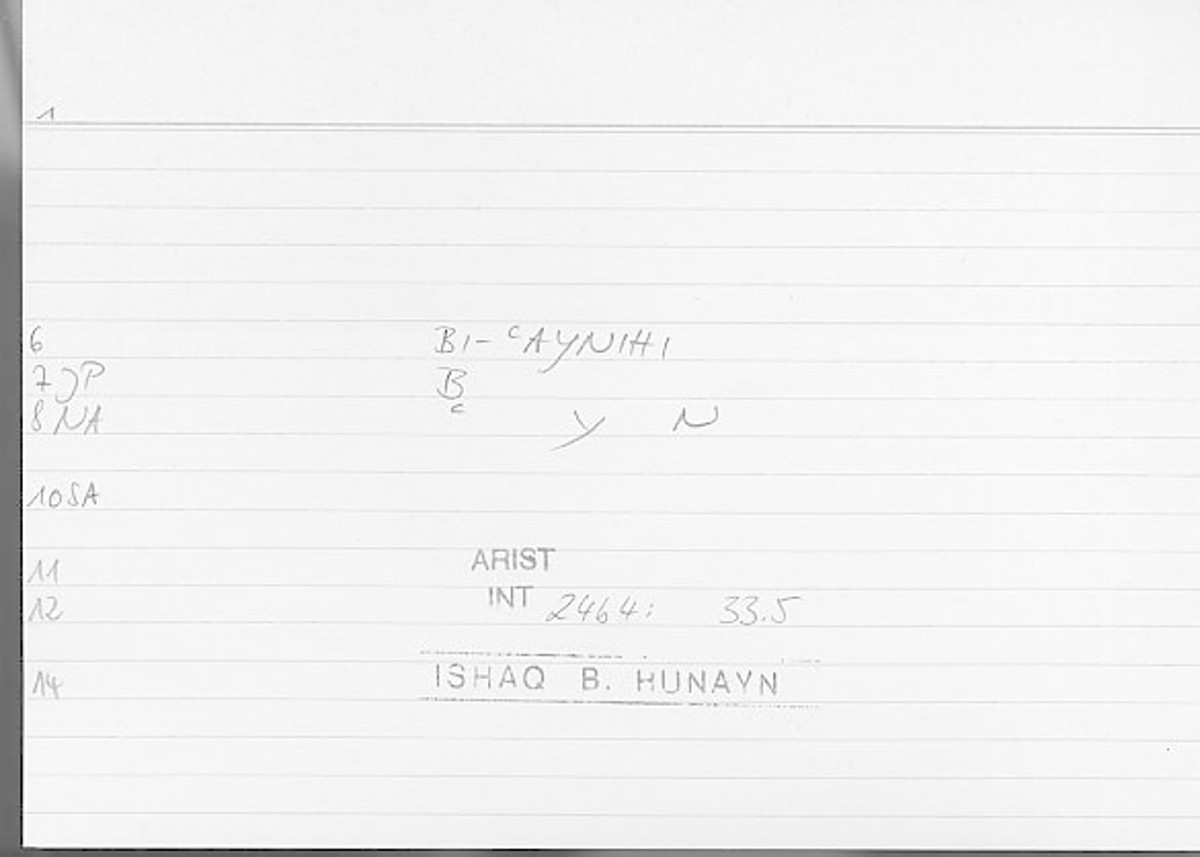 1
6 BI-ᶜAYNIHI
7 JP B
8 NA ᶜ Y N
10 SA
11 ARIST
12 INT 2464: 33.5
14 ISHAQ B. HUNAYN